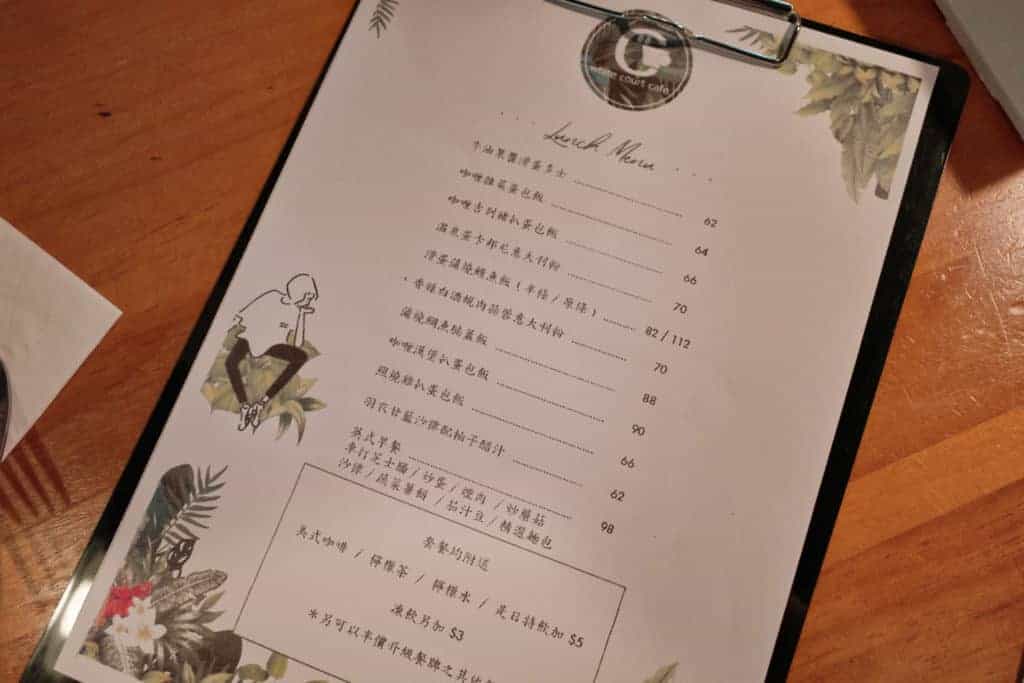 court cafe
Lunch Menu
牛油果醬滑蛋多士 62
咖喱雜菜蛋包飯 64
咖喱吉列豬扒蛋包飯 66
溫泉蛋卡邦尼意大利粉 70
滑蛋蒲燒鰻魚飯（半條 / 原條） 82 / 112
香辣白酒蜆肉蒜蓉意大利粉 70
蒲燒鰻魚班蓋飯 88
咖喱漢堡扒蛋包飯 90
照燒雞扒蛋包飯 66
羽衣甘藍沙律配柚子醋汁 62
英式早餐 98
車打芝士腸 / 炒蛋 / 煙肉 / 炒蘑菇
沙律 / 蔬菜薯餅 / 茄汁豆 / 精選麵包
套餐均附送
美式咖啡 / 檸檬茶 / 檸檬水 / 是日特飲加 $5
凍飲另加 $3
*另可以半價升級餐牌之其他